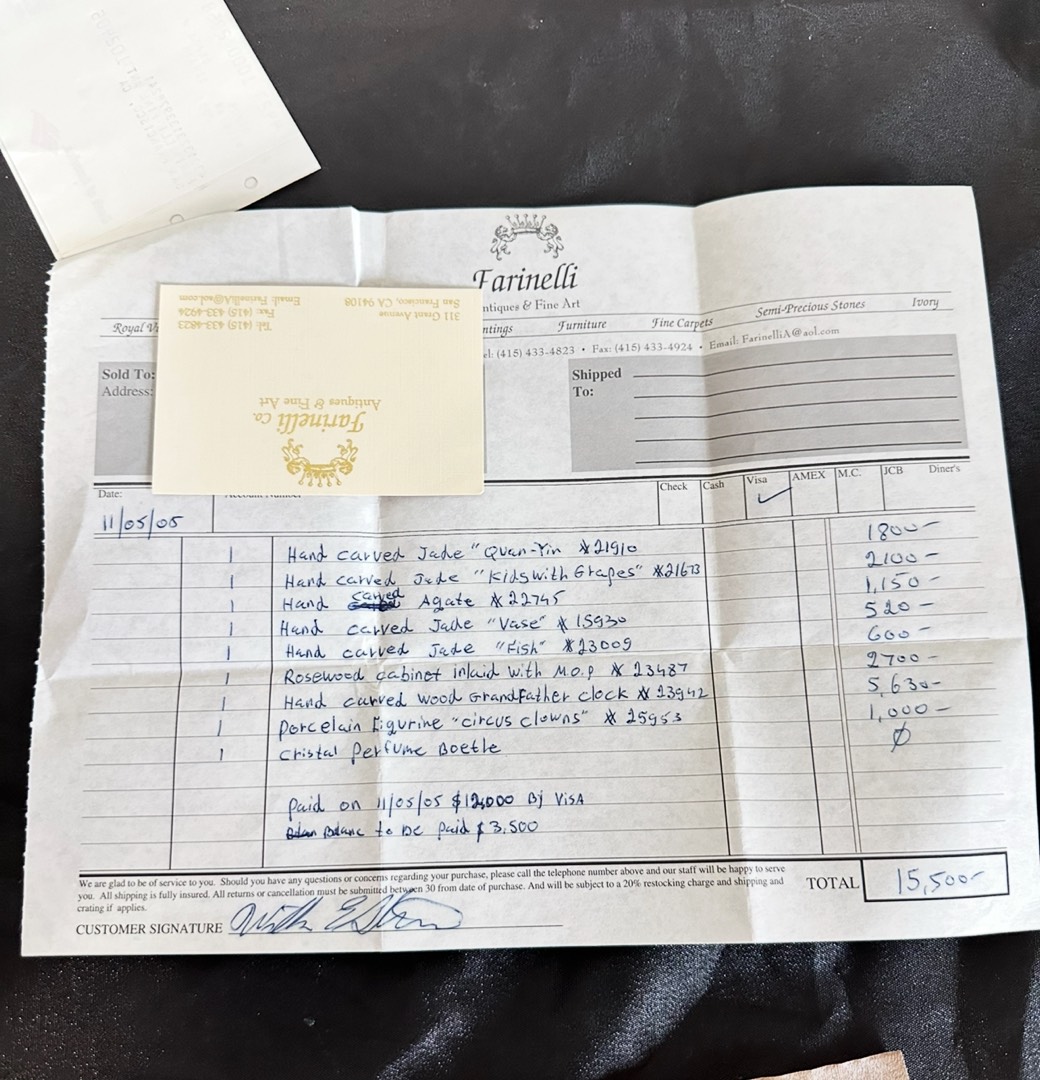 Farinelli
ntiques & Fine Art
Royal ntings Furniture Fine Carpets Semi-Precious Stones Ivory
el: (415) 433-4823 • Fax: (415) 433-4924 • Email: FarinelliA@aol.com
Farinelli Co.
Antiques & Fine Art
311 Grant Avenue
San Francisco, CA 94108
Tel: (415) 433-4823
Fax: (415) 433-4924
Email: FarinelliA@aol.com
Sold To:
Address:
Shipped
To:
Date: Account Number Check Cash Visa ✓ AMEX M.C. JCB Diner's
11/05/05
1 Hand carved Jade "Quan-Yin #21910 1800-
1 Hand carved Jade "Kids with Grapes" #21673 2100-
1 Hand carved Agate #22745 1,150-
1 Hand carved Jade "Vase" #15930 520-
1 Hand carved Jade "Fish" #23009 600-
1 Rosewood cabinet inlaid with M.O.P #23487 2700-
1 Hand carved wood Grandfather clock #23942 5,630-
1 Porcelain Figurine "circus clowns" #25953 1,000-
1 Cristal Perfume Boetle Ø
Paid on 11/05/05 $12,000 By VISA
Balanc to be paid $3,500
We are glad to be of service to you. Should you have any questions or concerns regarding your purchase, please call the telephone number above and our staff will be happy to serve
you. All shipping is fully insured. All returns or cancellation must be submitted between 30 from date of purchase. And will be subject to a 20% restocking charge and shipping and
crating if applies.
TOTAL 15,500-
CUSTOMER SIGNATURE